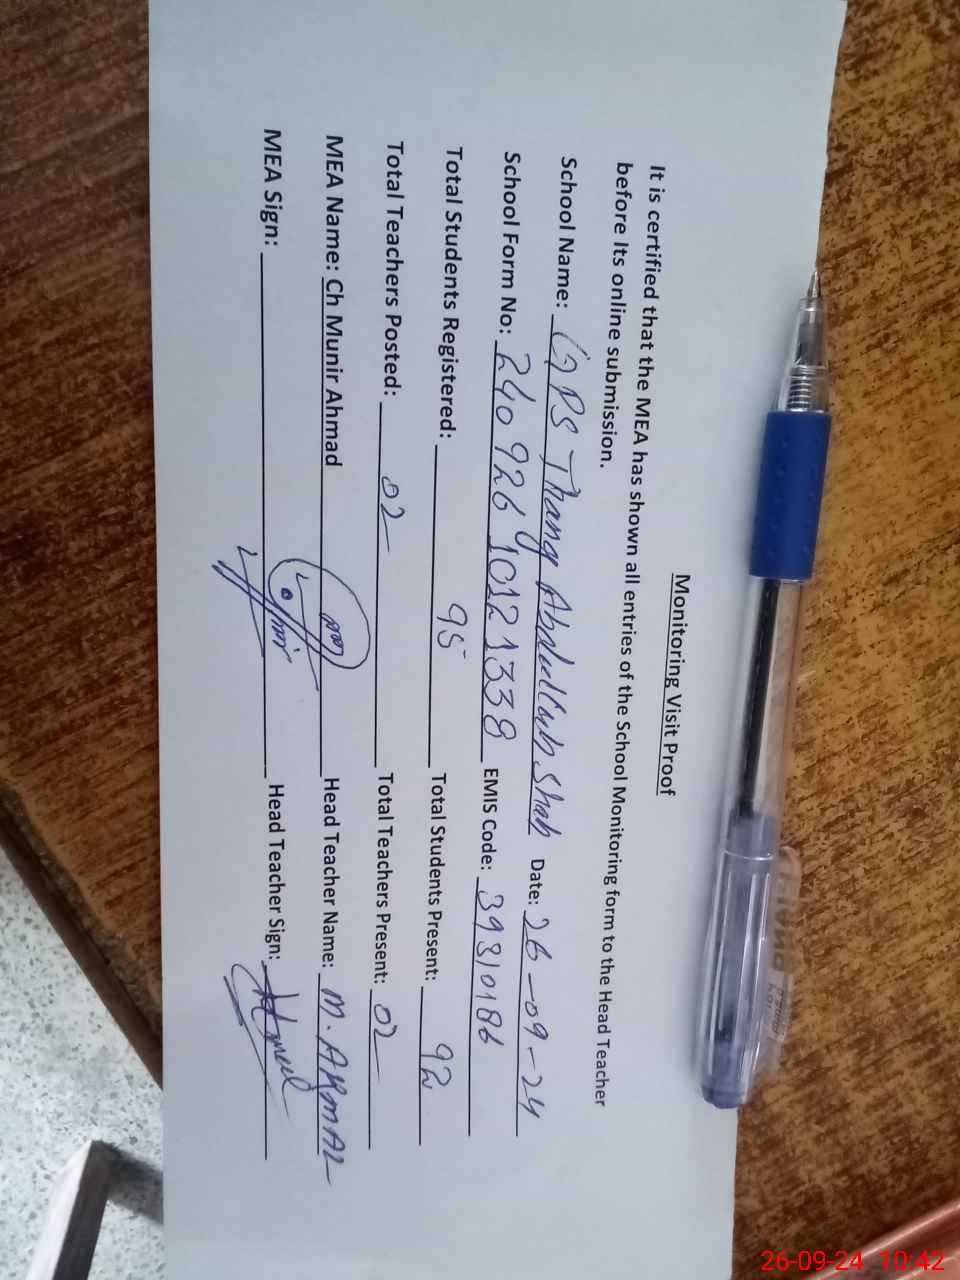 Monitoring Visit Proof
It is certified that the MEA has shown all entries of the School Monitoring form to the Head Teacher
before Its online submission.
School Name: GPS Thang Abdullah Shah Date: 26-09-24
School Form No: 240926 1012 1338 EMIS Code: 39310186
Total Students Registered: 95 Total Students Present: 92
Total Teachers Posted: 02 Total Teachers Present: 02
MEA Name: Ch Munir Ahmad Head Teacher Name: M. AKMAL
MEA Sign: Head Teacher Sign:
26-09-24 10:42